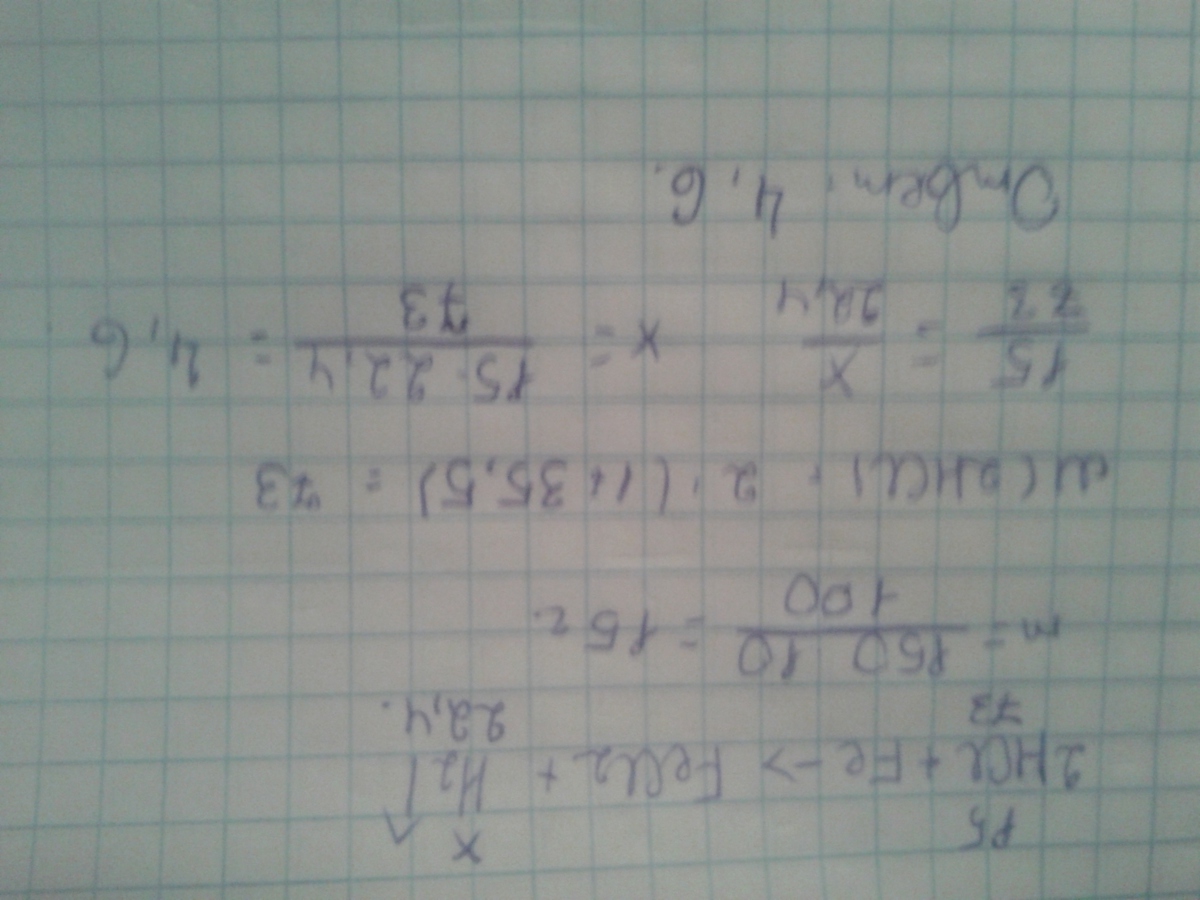 15 x
2HCl + Fe -> FeCl2 + H2↑
73 22,4.
m = 150 · 10 / 100 = 15 г.
M(2HCl) = 2 · (1+35,5) = 73
15 / 73 = x / 22,4 x = 15 · 22,4 / 73 = 4,6
Ответ: 4,6.